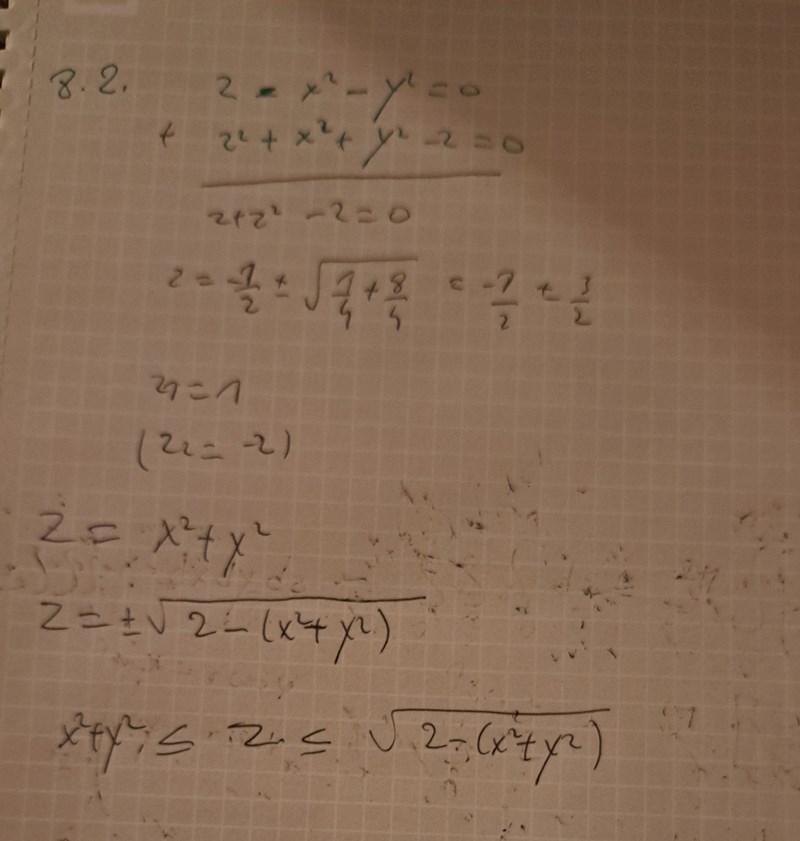 8.2. z - x² - y² = 0
+ z² + x² + y² - 2 = 0
z + z² - 2 = 0
z = -1/2 ± √(1/4 + 8/4) = -1/2 ± 3/2
z₁ = 1
(z₂ = -2)
z = x² + y²
z = ±√(2 - (x² + y²))
x² + y² ≤ z ≤ √(2 - (x² + y²))